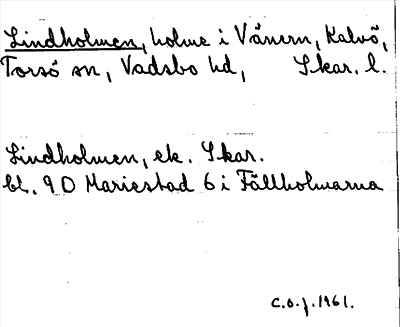 Lindholmen, holme i Vänern, Kalvö,
Torsö sn, Vadsbo hd, Skar. l.
Lindholmen, ek. Skar.
bl. 9D Mariestad 6 i Fällholmarna
C.O.J. 1961.